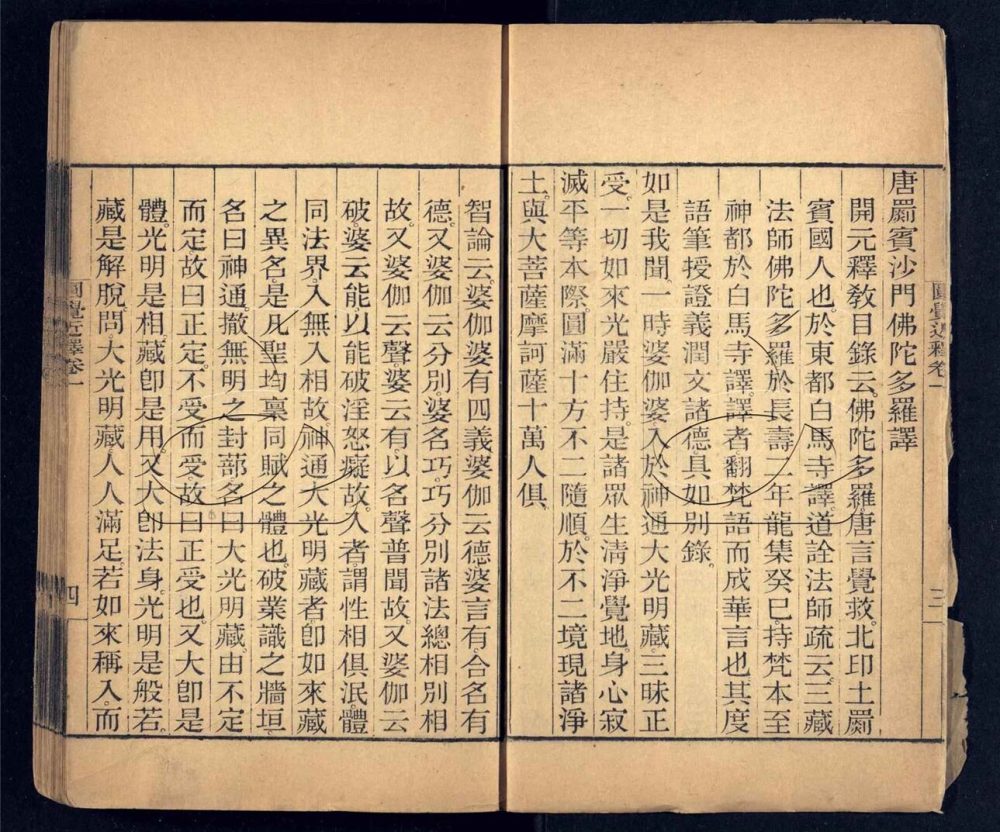 圓覺近釋卷一
三
唐罽賓沙門佛陀多羅譯
開元釋教目錄云。佛陀多羅。唐言覺救。北印土罽
賓國人也。於東都白馬寺譯。道詮法師疏云。三藏
法師佛陀多羅。於長壽二年龍集癸巳。持梵本至
神都。於白馬寺譯。譯者。翻梵語而成華言也。其度
語筆授證義潤文諸德。具如別錄。
如是我聞。一時婆伽婆。入於神通大光明藏。三昧正
受。一切如來光嚴住持。是諸眾生清淨覺地。身心寂
滅平等本際。圓滿十方不二隨順。於不二境現諸淨
土。與大菩薩摩訶薩十萬人俱。
智論云。婆伽婆有四義。婆伽云德。婆言有。合名有
德。又婆伽云分別。婆名巧。巧分別諸法總相別相
故。又婆伽云聲。婆云有。以名聲普聞故。又婆伽云
破。婆云能。以能破淫怒癡故。入者。謂性相俱泯。體
同法界。入無入相故。神通大光明藏者。卽如來藏
之異名。是凡聖均稟同賦之體也。破業識之牆垣
名曰神通。撤無明之封蔀。名曰大光明藏。由不定
而定。故曰正定。不受而受。故曰正受也。又大卽是
體。光明是相。藏卽是用。又大卽法身。光明是般若。
藏是解脫。問。大光明藏。人人滿足。若如來稱入。而
圓覺近釋卷一
四